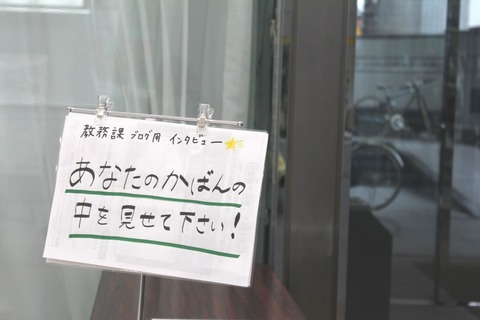 教務課 ブログ用 インタビュー
あなたのかばんの
中を見せて下さい!